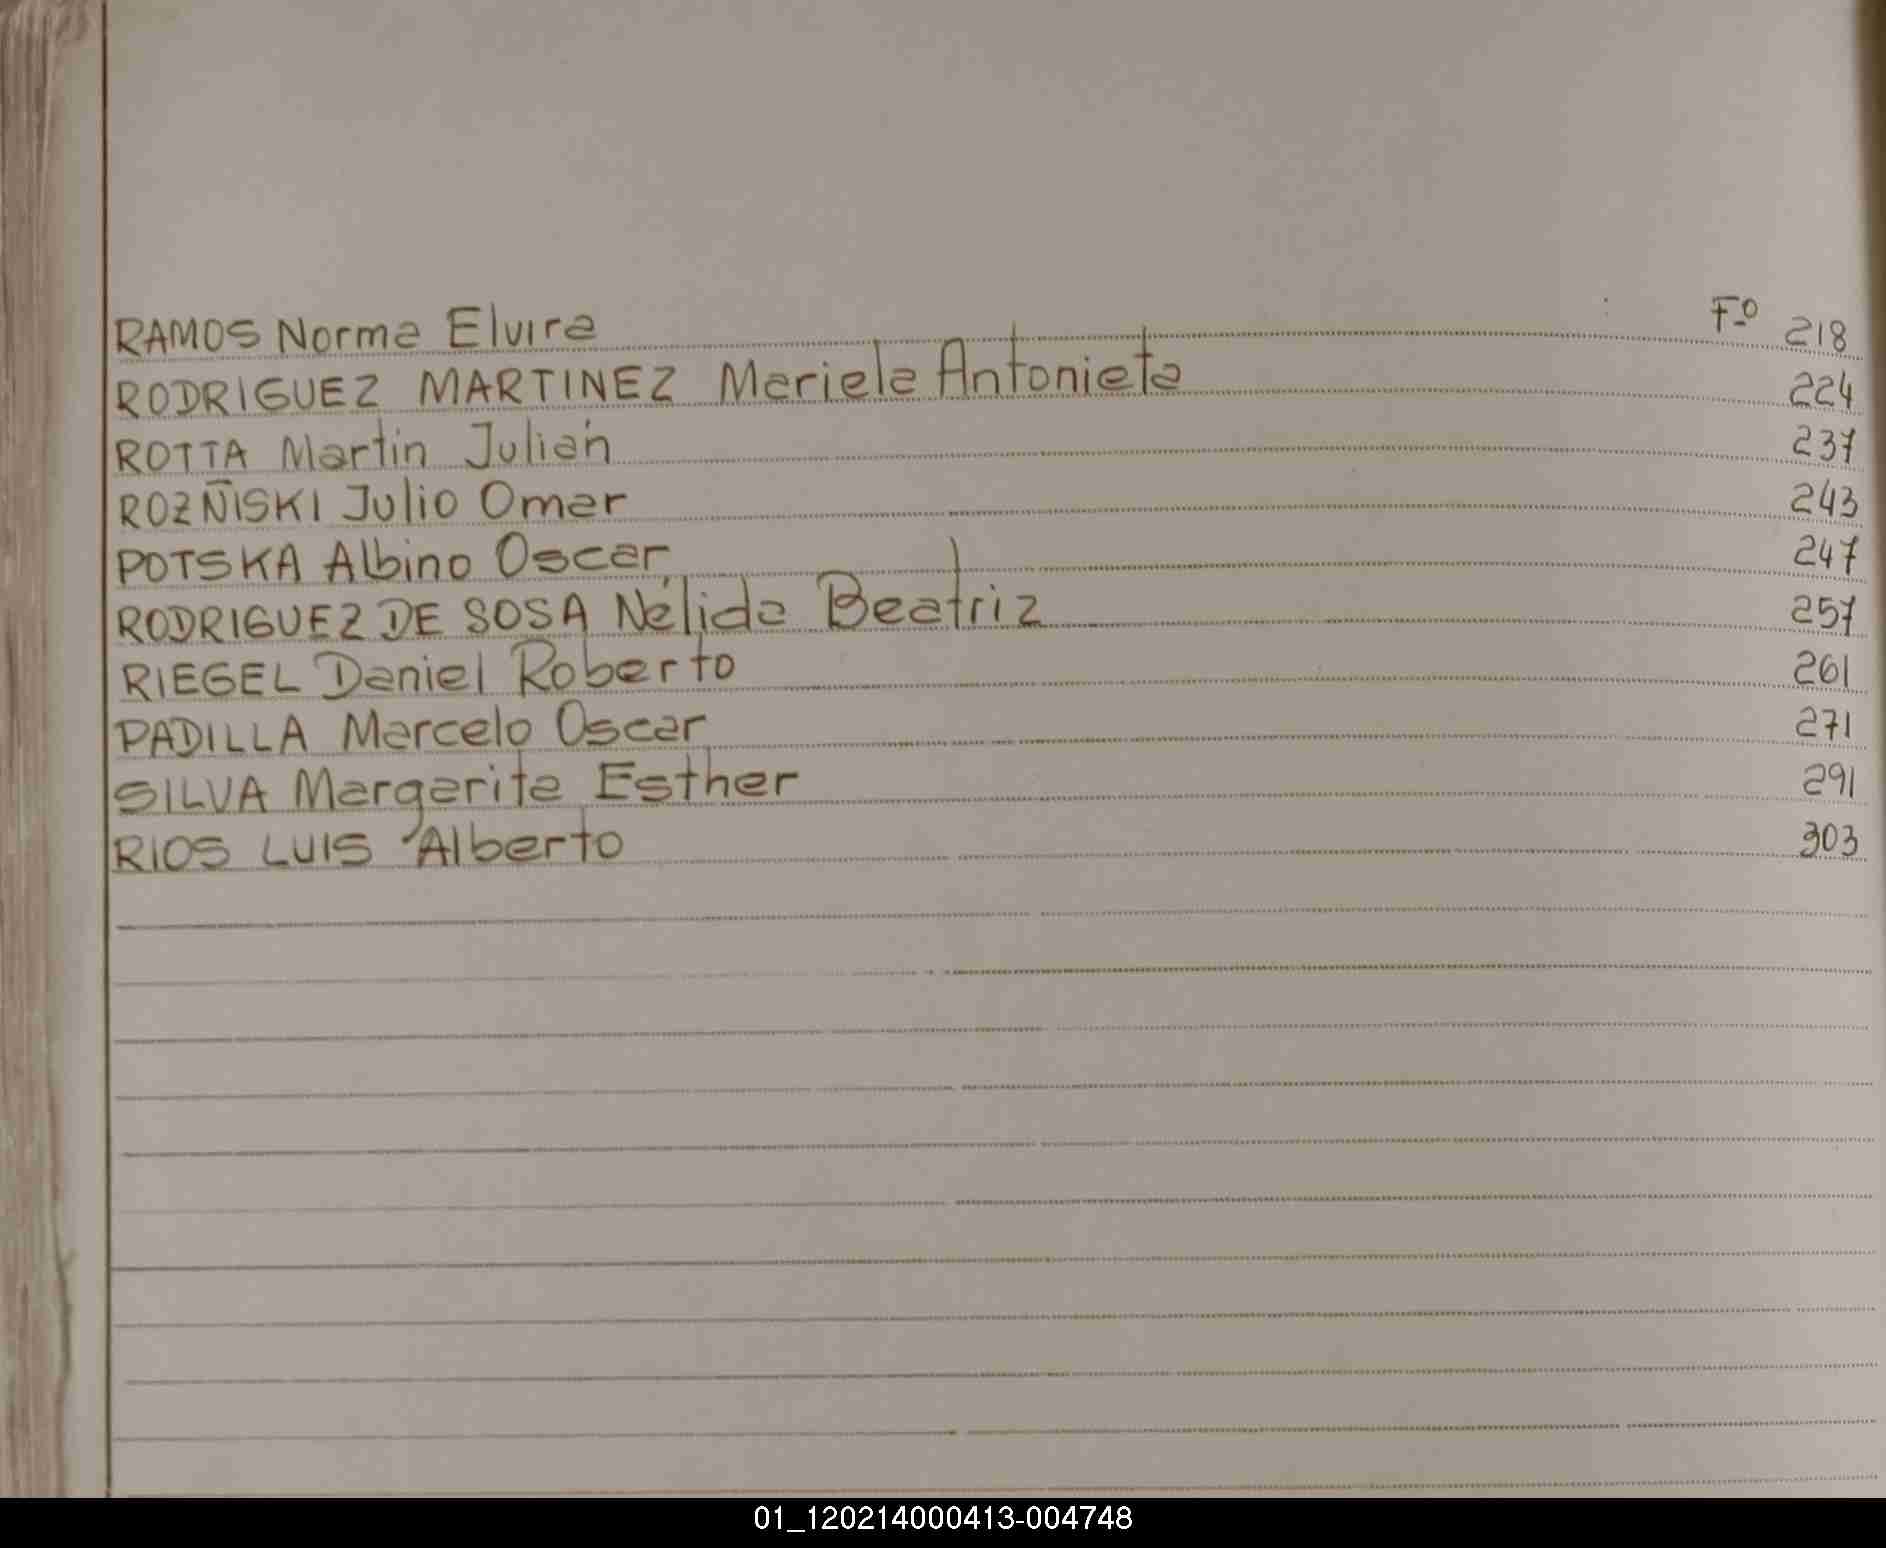 RAMOS Norma Elvira Fº 218
RODRIGUEZ MARTINEZ Mariela Antonieta 224
ROTTA Martin Julián 237
ROZÑISKI Julio Omar 243
POTSKA Albino Oscar 247
RODRIGUEZ DE SOSA Nélida Beatriz 257
RIEGEL Daniel Roberto 261
PADILLA Marcelo Oscar 271
SILVA Margarita Esther 291
RIOS LUIS Alberto 303
01_120214000413-004748